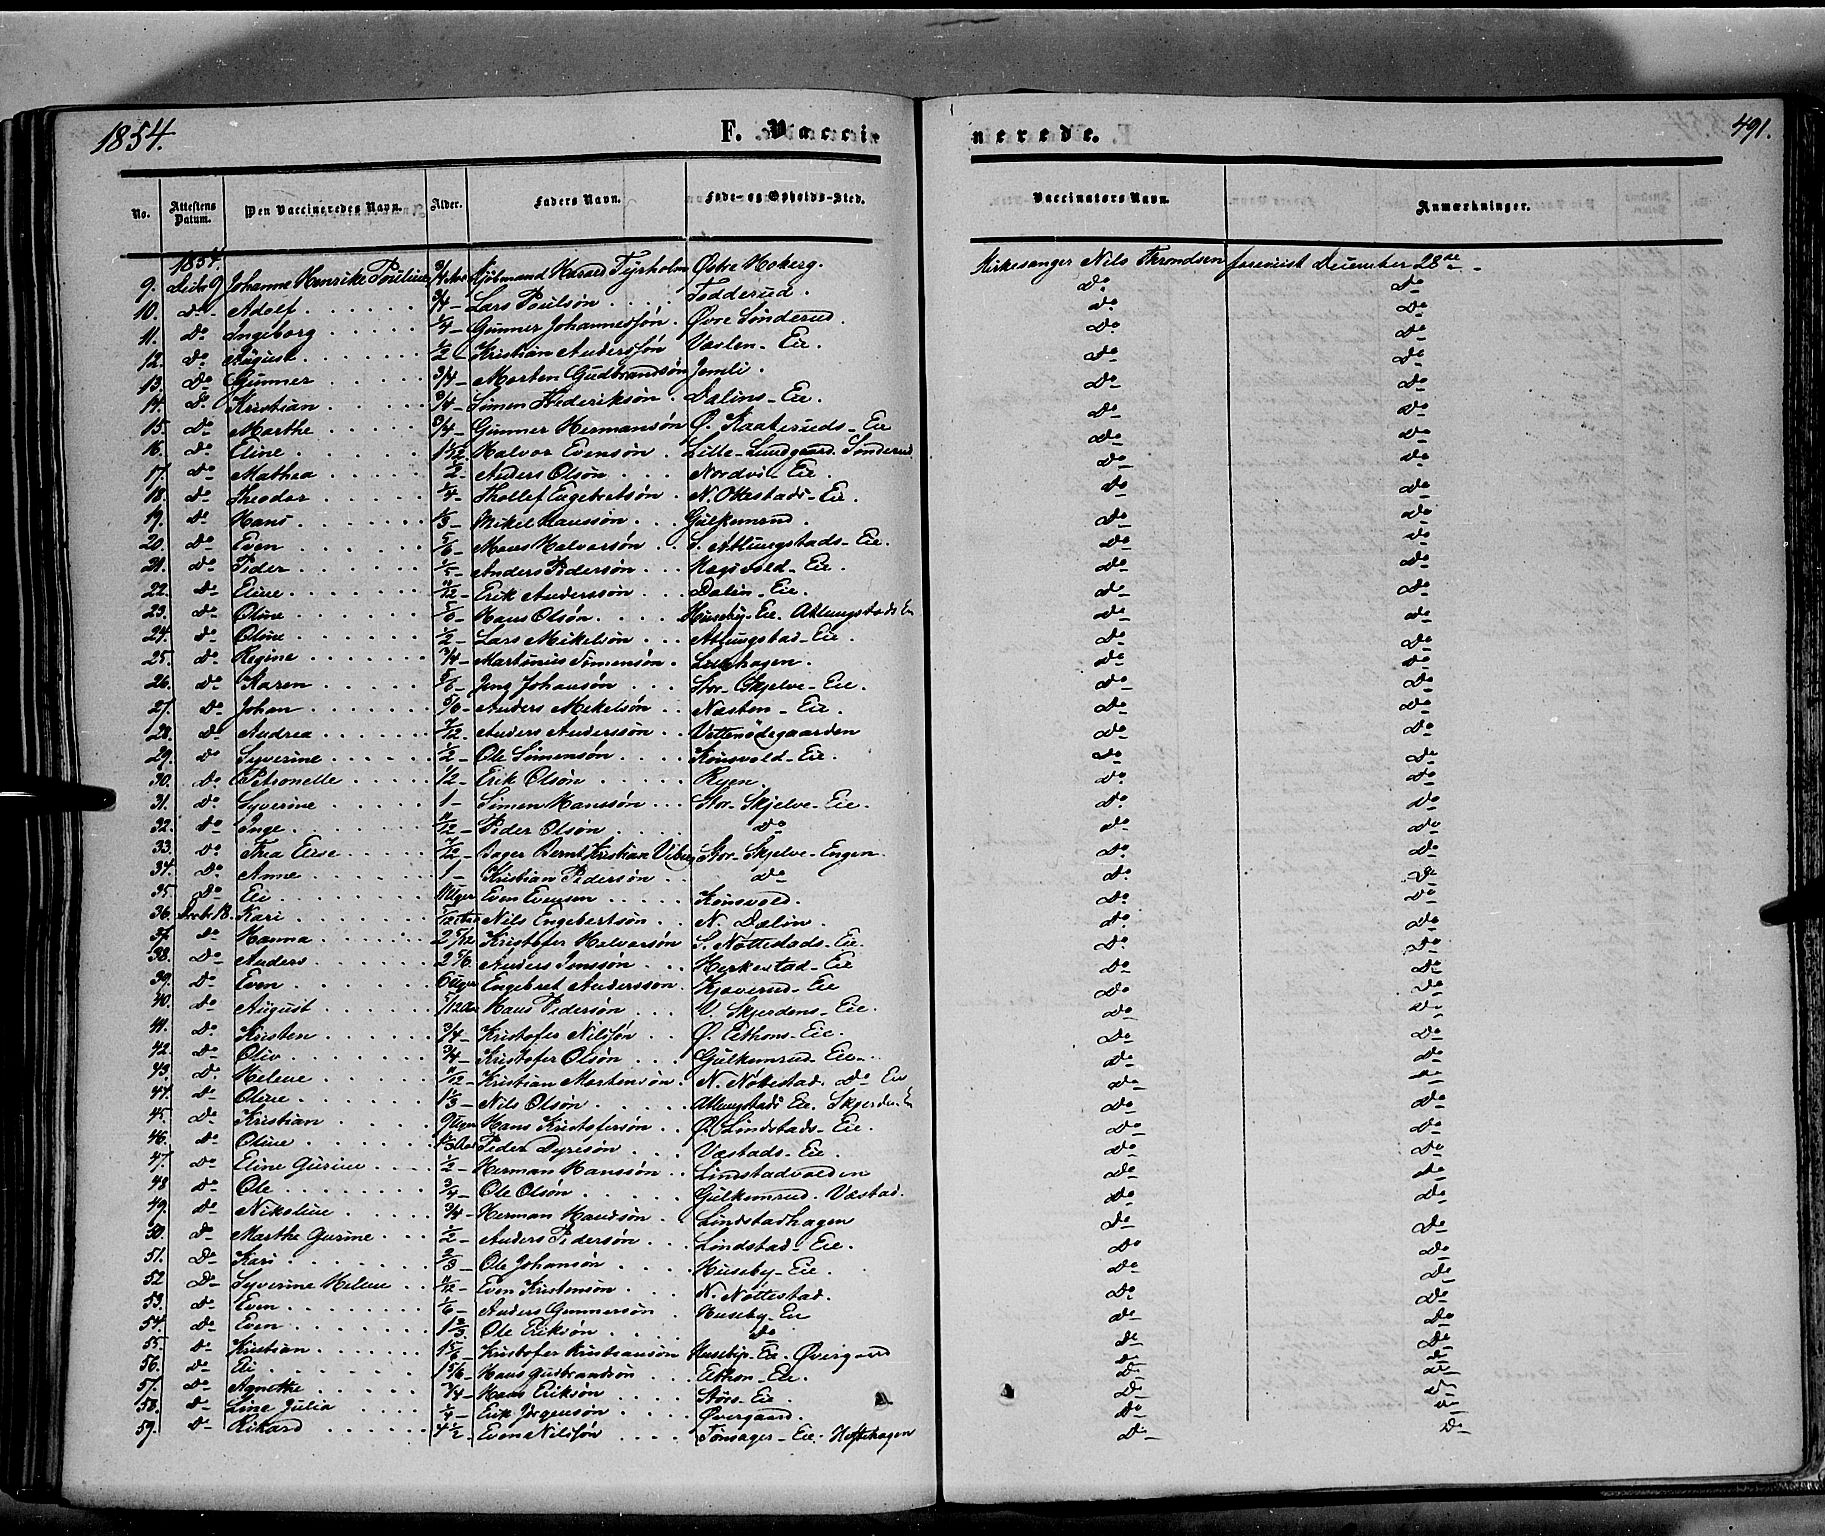 1854. F. Vacci nerede. 491.
No. Attestens Datum. Den Vaccineredes Navn. Alder. Faders Navn. Føde- og Opholds-Sted. Vaccinators Navn. Anmærkninger.
1854.
9. Johanne Henrike Pouline 3/4 Hoberg. Kirkesanger Nils Throndsen foreviist December 28de
10. Do Adolf 3/4 Lars Poulsøn Fodderud. Do Do
11. Do Ingeborg 1/4 Gunner Johannessøn. Øvre Sønderud. Do Do
12. Do August 1/2 Kristian Anderssøn Eie. Do Do
13. Do Gunner 3/4 Morten Gudbrandsøn Jemli. Do Do
14. Do Kristian 3/4 Simen Frederiksøn. Dalins-Eie. Do Do
15. Do Marthe 3/4 Gunner Hermansøn Ø. Kaateruds-Eie Do Do
16. Do Eline Halvor Evensøn. Lille-Lundgaard. Sønderud Do Do
17. Do Mathea 1/2 Anders Olsøn Nordvi-Eie. Do Do
18. Do Theodor 1/4 Thollef Engebretsøn N. Okestads-Eie. Do Do
19. Do Hans 1/3 Mikel Hanssøn Gulkemrud. Do Do
20. Do Even 5/6 Hans Halvorsøn S. Atlungstads-Eie. Do Do
21. Do Peder Anders Pedersøn Eie. Do Do
22. Do Eline Erik Anderssøn Dalin-Eie. Do Do
23. Do Oline Hans Olsøn Huseby-Eie. Atlungstads E. Do Do
24. Do Oline 1/2 Lars Mikelsøn Atlungstad-Eie. Do Do
25. Do Regine 3/4 Martinus Simensøn. Do Do
26. Do Karen 5/6 Johansøn Stor-Skjelve-Eie. Do Do
27. Do Johan 5/6 Anders Mikelsøn Nasten-Eie. Do Do
28. Do Andrea 7/12 Anders Anderssøn Vettenødegaarden Do Do
29. Do Syverine 1/2 Ole Simensøn Konsvold-Eie. Do Do
30. Do Petronelle 1/2 Erik Olsøn Ryen Do Do
31. Do Syverine 1 Simen Hanssøn Stor-Skjelve-Eie. Do Do
32. Do Inge 11/12 Peder Olsøn Do Do Do
33. Do Thea Elise 7/12 Bager Bernt Kristian Viberg Stor-Skjelve-Engen. Do Do
34. Do Anne 1 Kristian Pedersøn Do Do Do
35. Do Eli Uger Even Evensen Konsvold. Do Do
36. Kari Nils Engebretsøn N. Dalin. Do Do
37. Do Hanna 2 5/12 Kristofer Halvorsøn S. Nøttestads-Eie. Do Do
38. Do Anders 2 5/6 Anders Jenssøn Herkestad-Eie Do Do
39. Do Even 6 Uger Engebret Anderssøn. Kjoverud-Eie Do Do
40. Do August Hans Pedersøn V. Skjerdens-Eie. Do Do
41. Do Kristen 3/4 Kristofer Nilssøn Ø. Eithons-Eie. Do Do
42. Do Oliv 3/4 Kristofer Olsøn Gulkemrud-Eie. Do Do
43. Do Helene 11/12 Kristian Mortensøn. N. Nøttestad. Do Eie Do Do
44. Do Oline 1 1/3 Nils Olsøn Atlungstads Eie. Do Do
45. Do Kristian 9 Uger Hans Kristofersøn Ø. Lindstads-Eie. Do Do
46. Do Oline Peder Dyresøn Vastads-Eie. Do Do
47. Do Eline Gurine 1/2 Herman Hanssøn Lindstadvolden Do Do
48 Do Ole 3/4 Ole Olsøn Gulkemrud. Væstad. Do Do
49. Do Nikoline 3/4 Herman Hanssøn Lindstadhagen Do Do
50. Do Marthe Gurine 1/2 Anders Pedersøn Lindstad-Eie. Do Do
51. Do Kari 2/3 Ole Johansøn Huseby-Eie. Do Do
52 Do Syverine Helene Even Kristensøn N. Nøttestad. Do Do
53. Do Even 1/6 Anders Gunnersøn Huseby-Eie Do Do
54. Do Even 1 2/3 Ole Eriksøn Do Do Do
55. Do Kristian 1 5/6 Kristofer Kristiansøn Huseby-Eie. Øvergaard Do Do
56. Do Eli 1 5/6 Hans Gudbrandsøn Eithon-Eie. Do Do
57. Do Agnethe 3/4 Hans Eriksøn Størs-Eie. Do Do
58. Do Line Julia 1/4 Erik Jørgensøn Øvergaard. Do Do
59. Do Rikard 4 1/2 Even Nilssøn Tønsager-Eie. Do Do